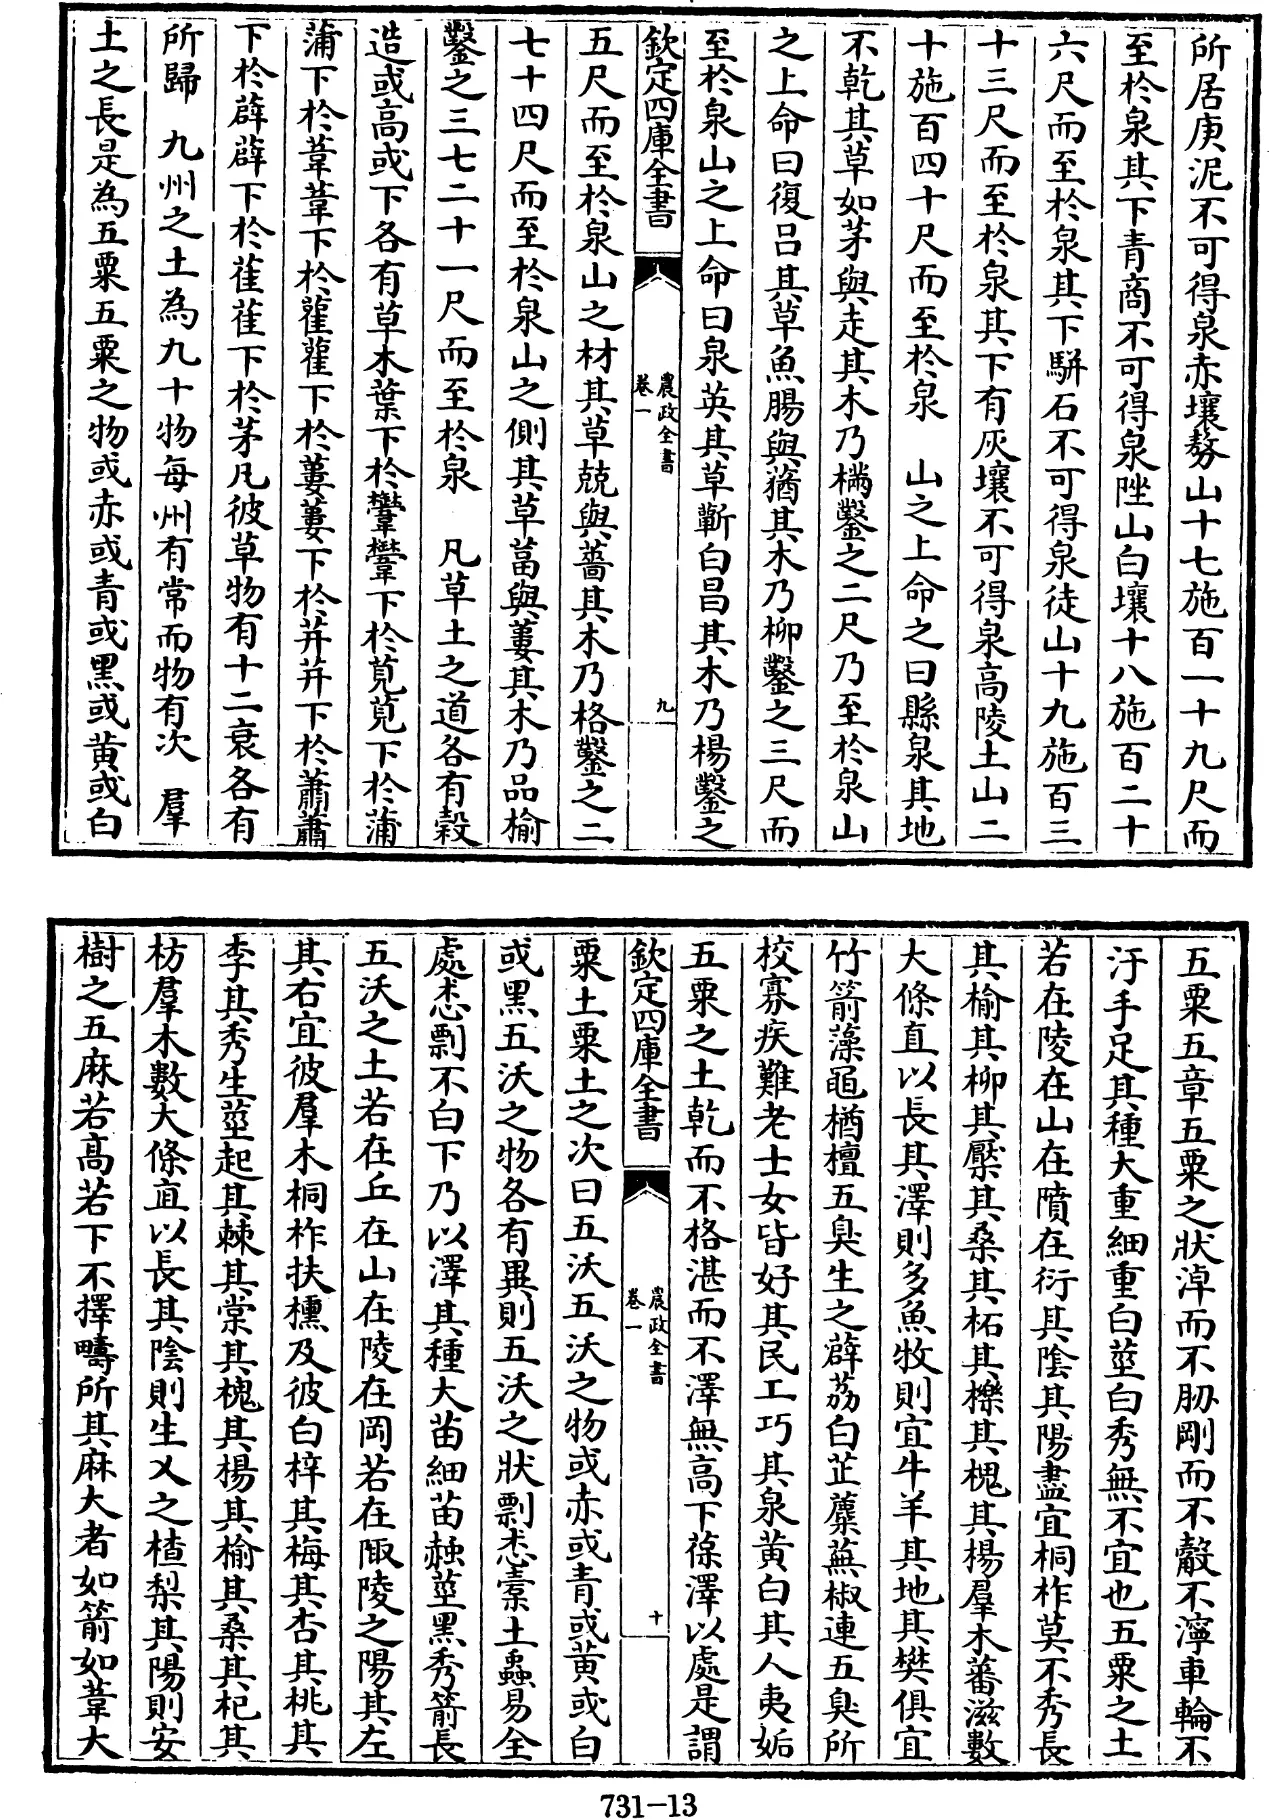 所居庚泥不可得泉赤壤𠢕山十七施百一十九尺而
至於泉其下青商不可得泉陛山白壤十八施百二十
六尺而至於泉其下駢石不可得泉徒山十九施百三
十三尺而至於泉其下有灰壤不可得泉高陵土山二
十施百四十尺而至於泉 山之上命之曰縣泉其地
不乾其草如茅與走其木乃樠鑿之二尺乃至於泉山
之上命曰復呂其草魚腸與猶其木乃柳鑿之三尺而
至於泉山之上命曰泉英其草蘄白昌其木乃楊鑿之
欽定四庫全書
農政全書
卷一
九
五尺而至於泉山之材其草兢與薔其木乃格鑿之二
七十四尺而至於泉山之側其草葍與蔞其木乃品榆
鑿之三七二十一尺而至於泉 凡草土之道各有穀
造或高或下各有草木葉下於䕎䕎下於莧莧下於蒲
蒲下於葦葦下於雚雚下於蔞蔞下於荓荓下於蕭蕭
下於薜薜下於萑萑下於茅凡彼草物有十二衰各有
所歸 九州之土為九十物每州有常而物有次 羣
土之長是為五粟五粟之物或赤或青或黑或黃或白
五粟五章五粟之狀淖而不肕剛而不觳不濘車輪不
汙手足其種大重細重白莖白秀無不宜也五粟之土
若在陵在山在隫在衍其陰其陽盡宜桐柞莫不秀長
其榆其柳其檿其桑其柘其櫟其槐其楊羣木蕃滋數
大條直以長其澤則多魚牧則宜牛羊其地其樊俱宜
竹箭藻黽楢檀五臭生之薜荔白芷蘪蕪椒連五臭所
校寡疾難老士女皆好其民工巧其泉黃白其人夷姤
五粟之土乾而不格湛而不澤無高下葆澤以處是謂
欽定四庫全書
農政全書
卷一
十
粟土粟土之次曰五沃五沃之物或赤或青或黃或白
或黑五沃之物各有異則五沃之狀剽怸橐土蟲易全
處怸剽不白下乃以澤其種大苗細苗赨莖黑秀箭長
五沃之土若在丘在山在陵在岡若在陬陵之陽其左
其右宜彼羣木桐柞扶櫄及彼白梓其梅其杏其桃其
李其秀生莖起其棘其棠其槐其楊其榆其桑其杞其
枋羣木數大條直以長其陰則生乂之楂梨其陽則安
樹之五麻若高若下不擇疇所其麻大者如箭如葦大
731-13